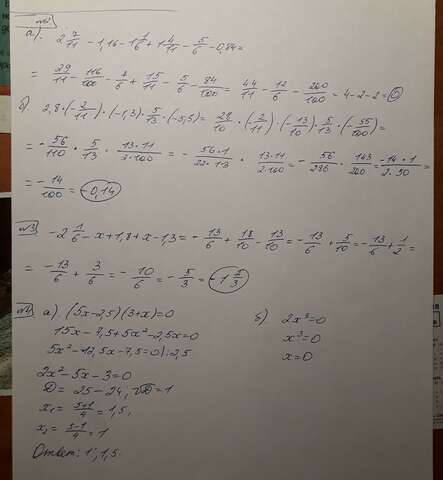 №2
а). 2 7/11 - 1,16 - 1 1/6 + 1 4/11 - 5/6 - 0,84 =
= 29/11 - 116/100 - 7/6 + 15/11 - 5/6 - 84/100 = 44/11 - 12/6 - 200/100 - 4-2-2=0
б) 2,8·(-2/11)·(-1,3)·5/13·(-5,5) = 28/10·(-2/11)·(-13/10)·5/13·(-55/100)=
= -56/110 · 5/13 · 13*11/2*100 = -56*1/22*13 · 13*11/2*100 = -56/286 · 143/200 = -14*1/2*50 =
= -14/100 = -0,14
№3 -2 1/6 - x + 1,8 + x - 1,3 = -13/6 + 18/10 - 13/10 = -13/6 + 5/10 = -13/6 + 1/2 =
= -13/6 + 3/6 = -10/6 = -5/3 =
№4 а). (5x-2,5)(3+x)=0
15x-7,5+5x²-2,5x=0
2x²-5x-3=0
D= 25-24, √D=1
x₁ = 5+1/4 = 1,5.
x₂ = 5-1/4 = 1
Ответ: 1; 1,5.
б). 2x³=0
x³=0
x=0